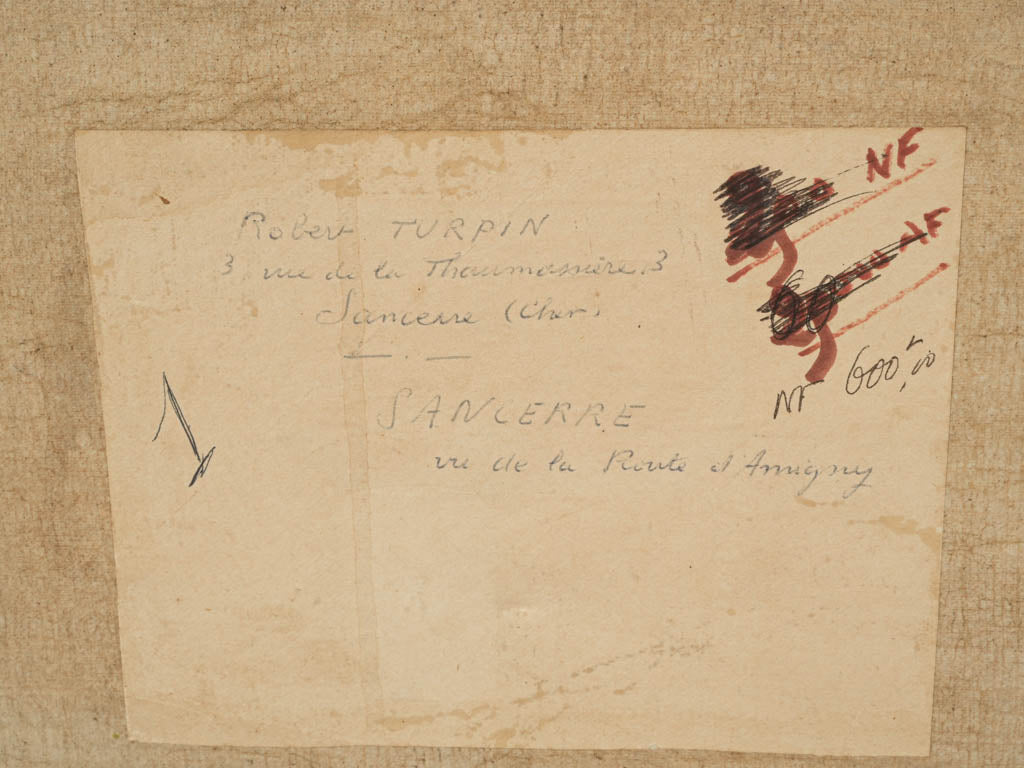 NF
Robert TURPIN
3 rue de la Thaumassière, 3
Sancerre (Cher)
NF
60
NF 600,00
SANCERRE
vu de la Route d'Amigny